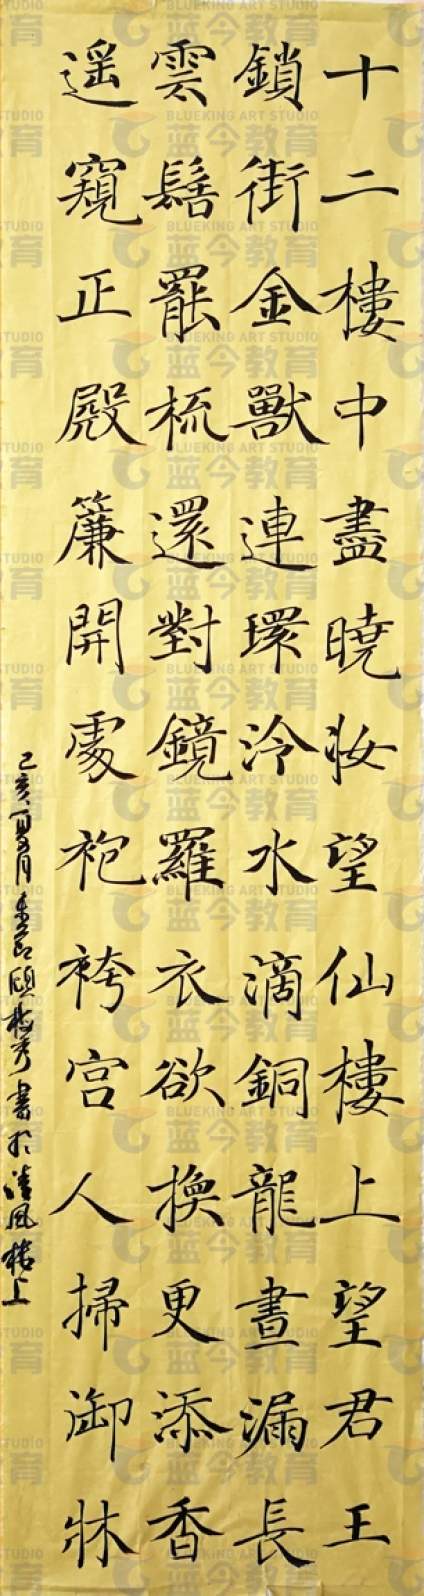 十二樓中盡曉妝望仙樓上望君王
鎖街金獸連環泠水滴銅龍晝漏長
雲髻罷梳還對鏡羅衣欲換更添香
遥窺正殿簾開處袍袴宮人掃御牀
己亥夏月 書於清風樓上
BLUEKING ART STUDIO
蓝今教育